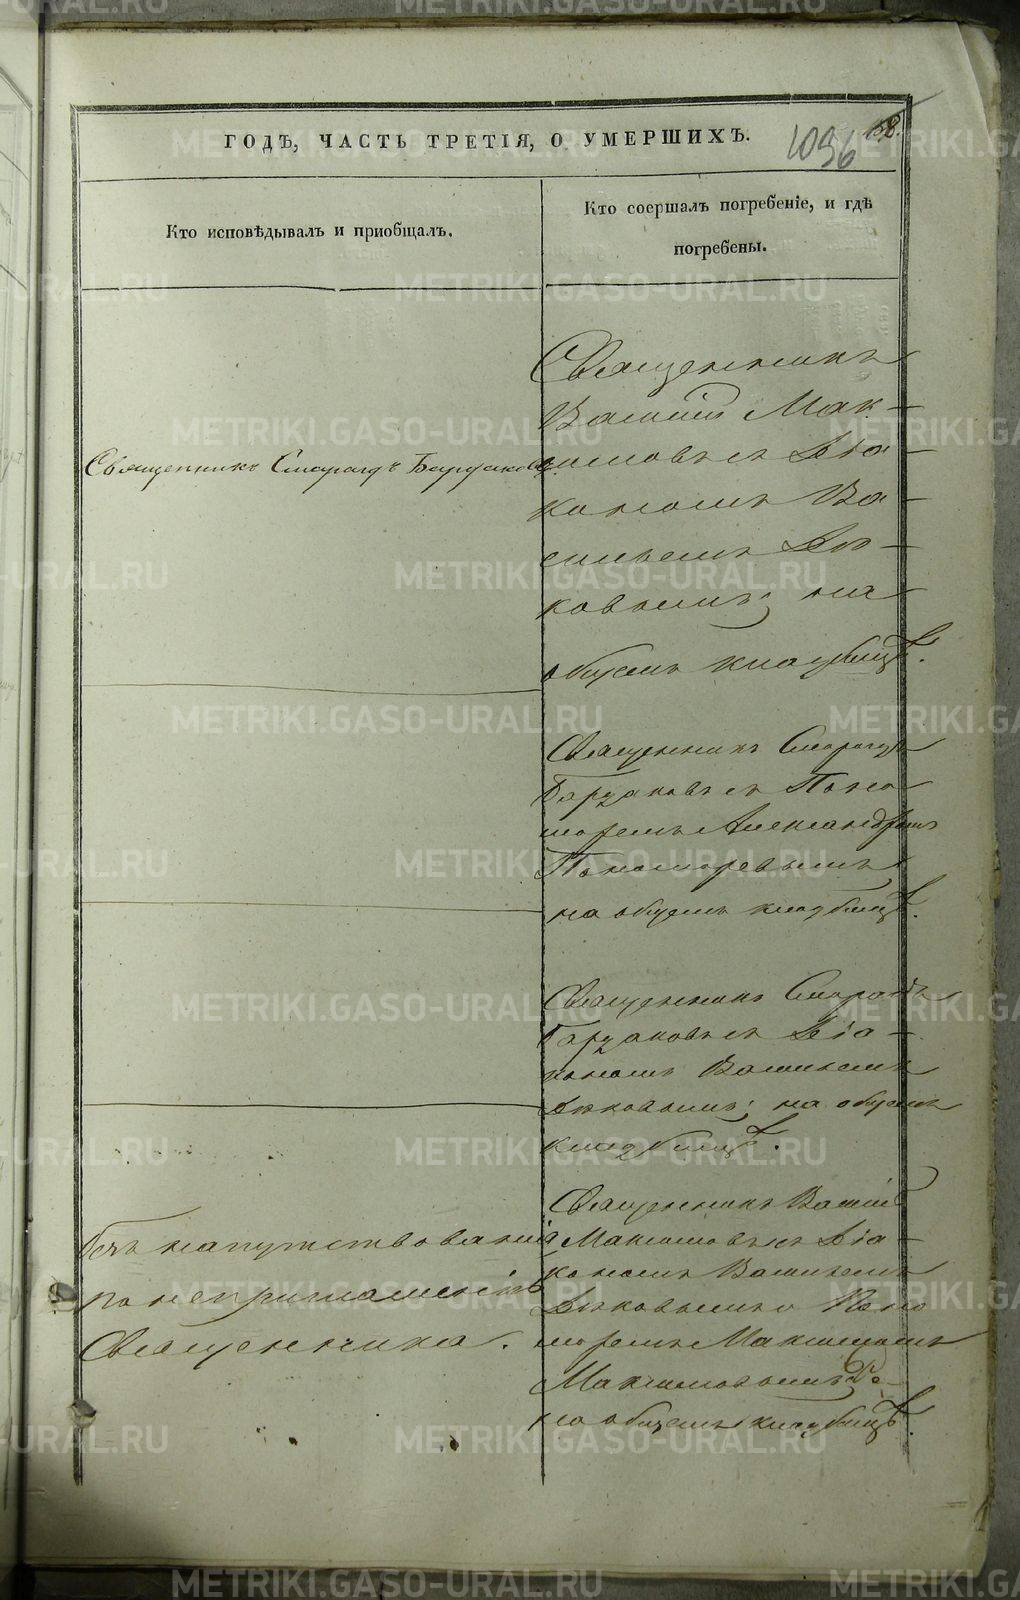 ГОДЪ, ЧАСТЬ ТРЕТІЯ, О УМЕРШИХЪ.
1096
Кто исповѣдывалъ и приобщалъ.
Кто соершалъ погребеніе, и гдѣ
погребены.
Священникъ Смарагдъ Бардаковъ.
Священникъ
Василій Мак-
симовъ съ Діа-
кономъ Ва-
сильемъ
ковымъ; на
общемъ кладбищѣ.
Священникъ Смарагдъ
Бардаковъ съ Поно-
маремъ Александромъ
Пономаревымъ
на общемъ кладбищѣ.
Священникъ Смарагдъ
Бардаковъ съ Діа-
кономъ Василіемъ
на общемъ
кладбищѣ.
Безъ напутствованія
по неприглашенію
Священника.
Священникъ Василій
Максимовъ съ Діа-
кономъ Василіемъ
и Поно
маремъ Максимомъ
Максимовымъ
на общемъ кладбищѣ.
METRIKI.GASO-URAL.RU